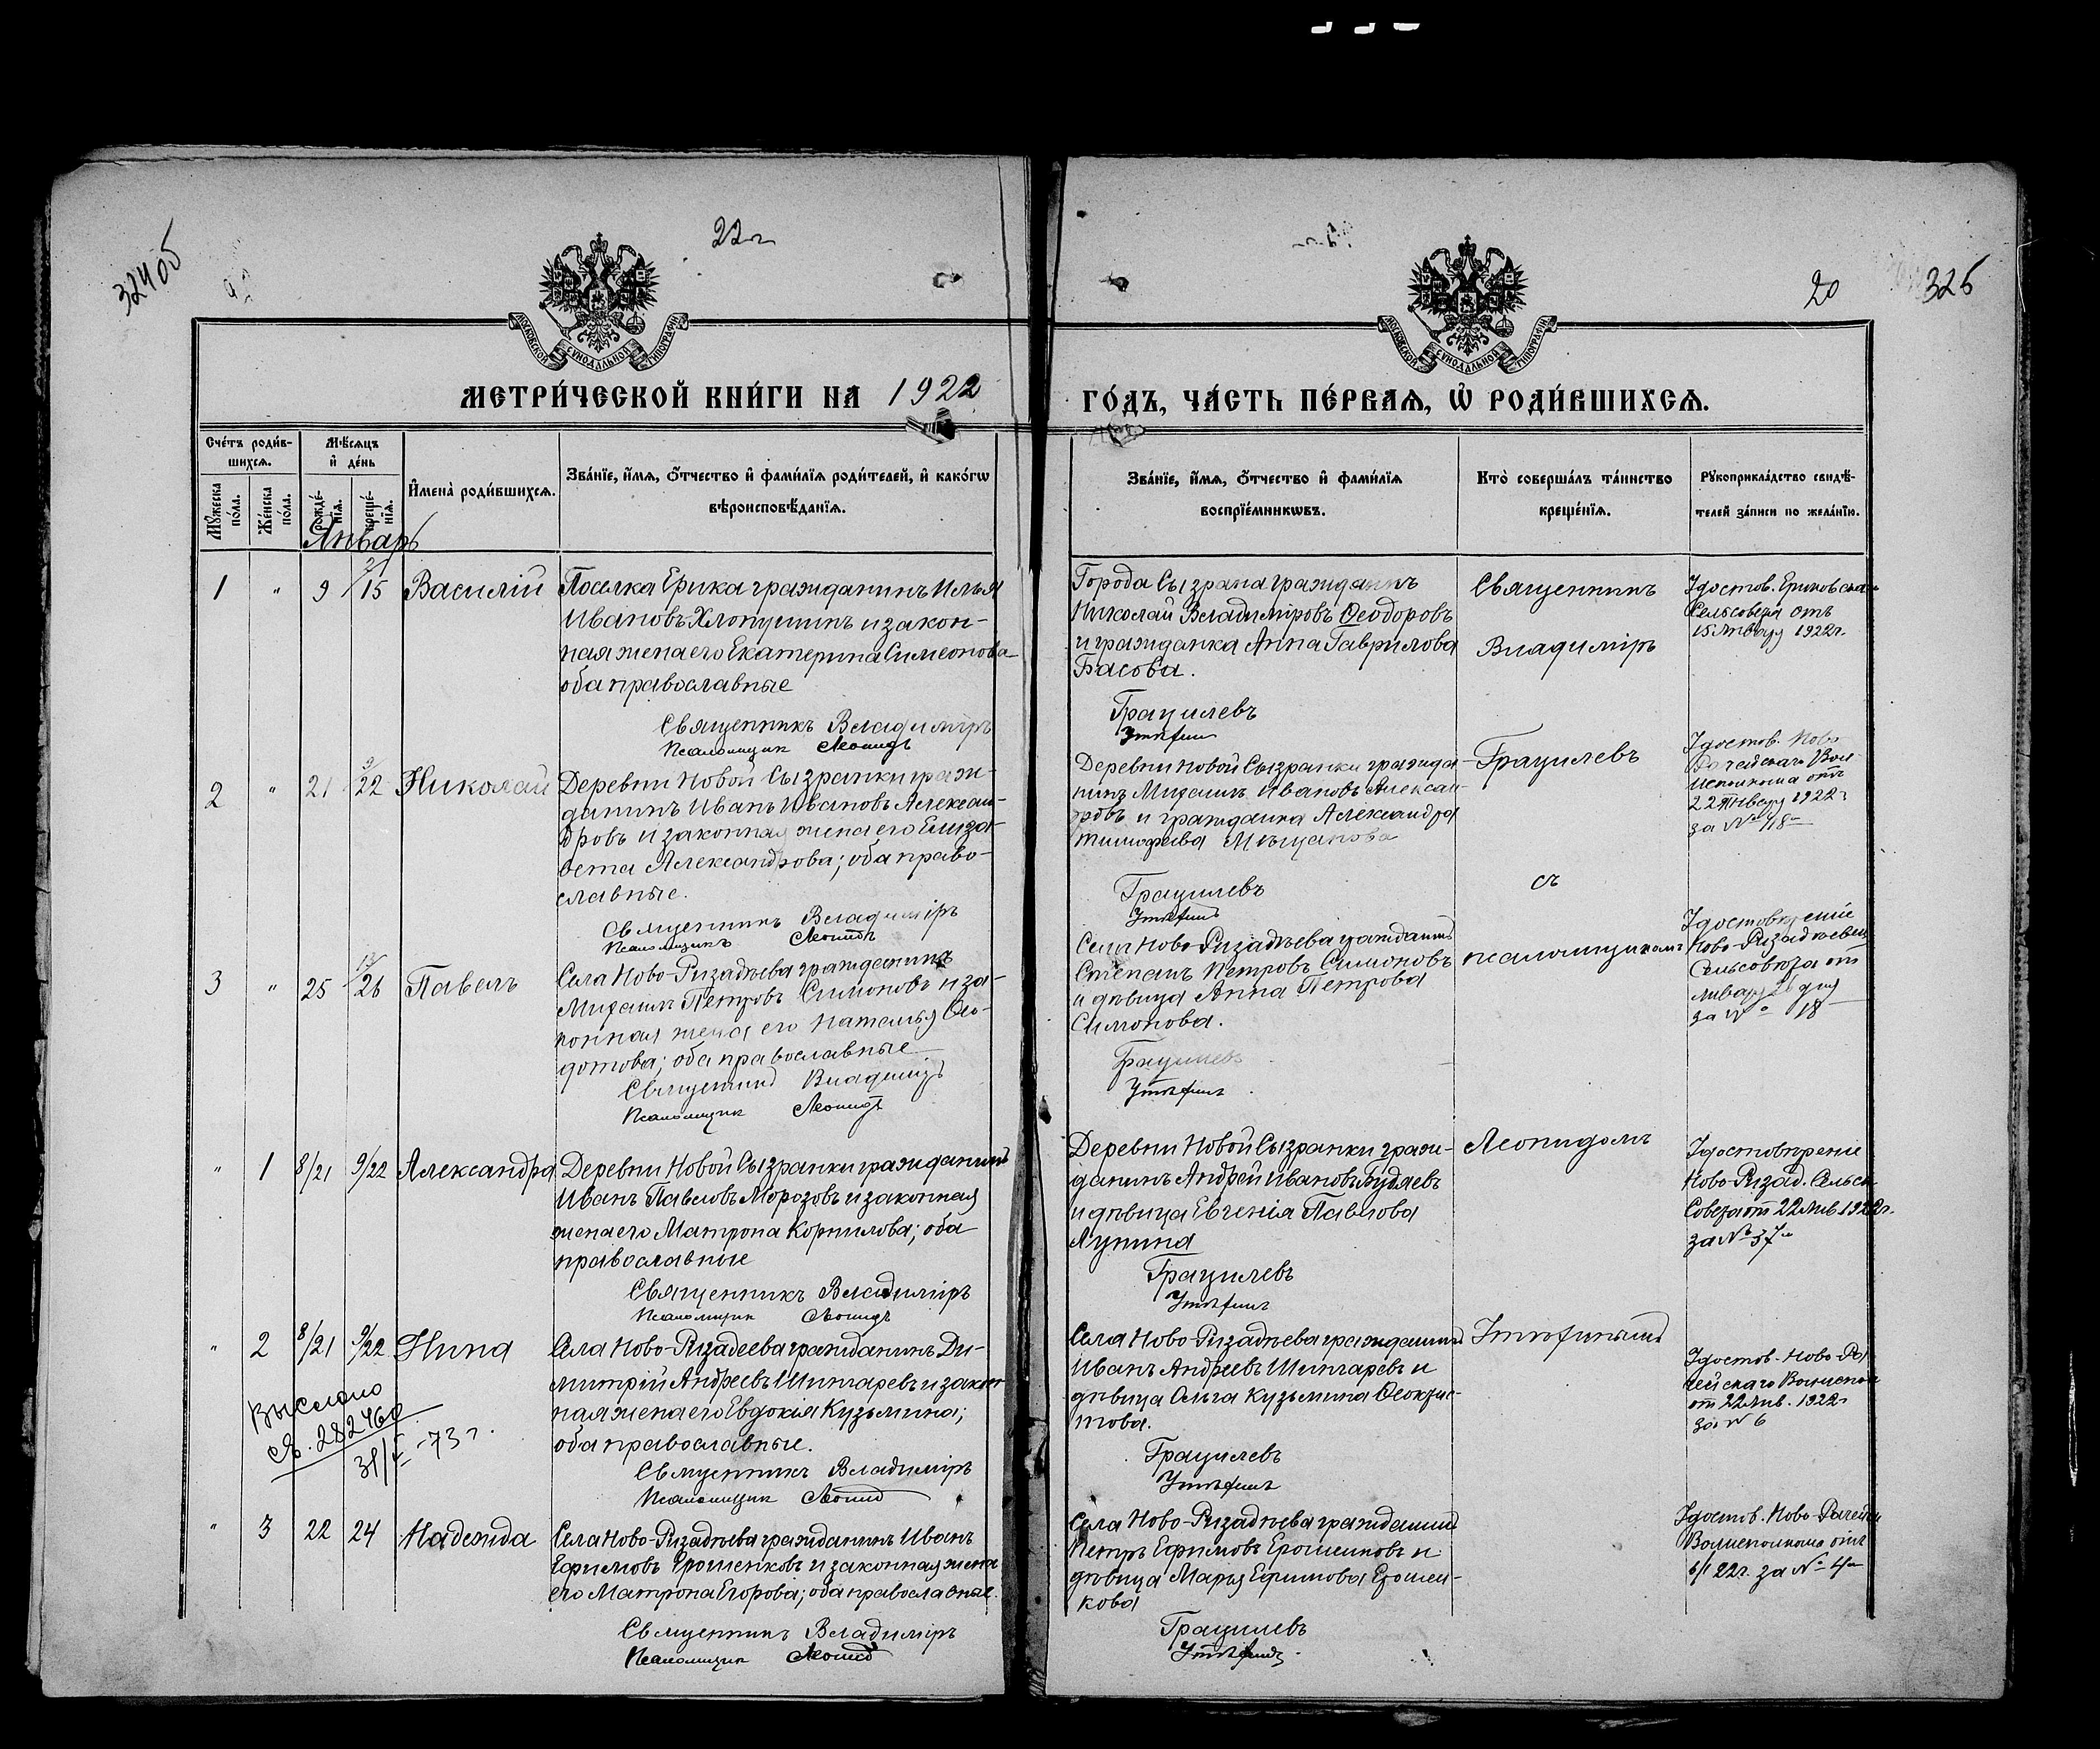 324об
22 г.
20
325
МОСКОВСКОЙ СУНОДАЛЬНОЙ ТИПОГРАФІИ
МОСКОВСКОЙ СУНОДАЛЬНОЙ ТИПОГРАФІИ
МЕТРИ́ЧЕСКОЙ КНИ́ГИ НА 1922
ГО́ДЪ, ЧА́СТЬ ПЕ́РВАѦ, Ѽ РОДИ́ВШИХСѦ.
Сче́тъ роди́в-
шихсѧ.
Мѣ́сѧцъ
и҆ де́нь
Мꙋ́жеска по́ла.
Же́нска по́ла.
рожде́-
нїѧ.
креще́-
нїѧ.
И҆мена̀ роди́вшихсѧ.
Зва́нїе, и҆́мѧ, ѻ҆́тчество и҆ фами́лїѧ роди́телей, и҆ како́гѡ
вѣроисповѣ́данїѧ.
Зва́нїе, и҆́мѧ, ѻ҆́тчество и҆ фами́лїѧ
воспрїе́мникѡвъ.
Кто̀ соверша́лъ та́инство
креще́нїѧ.
Рꙋкоприкла́дство свидѣ́-
телей за́писи по жела́нїю.
Январь
1 " 9 15 Василій
Поселка Ерика гражданинъ Илья
Ивановъ Хлопушинъ и закон-
ная жена его Екатерина Симеонова
оба православные
Священникъ Владиміръ
Псаломщик Леонидъ
Города Сызрана гражданинъ
Николай Владиміровъ Ѳеодоровъ
и гражданка Анна Гаврилова
Басова.
Грацилевъ
Священникъ
Владиміръ
Удостов. Ериковскаго
Сельсовета отъ
15 Январу 1922 г.
2 " 21 22 Николай
Деревни Новой Сызранки граж-
данинъ Иванъ Ивановъ Алексан-
дровъ и законная жена его Елиза-
вета Александрова; оба право-
славные.
Священникъ Владиміръ
Псаломщикъ Леонидъ
Деревни Новой Сызранки гражда-
нинъ Михаилъ Ивановъ Алексан-
дровъ и гражданка Александра
Тимофеева Мѣщанова
Грацилевъ
Грацилевъ
съ
Удостов. Ново
Исполкома отъ
22 Январу 1922 г.
за №
3 " 25 26 Павелъ
Села Ново-Ризадѣева гражданинъ
Михаилъ Петровъ Симоновъ и за-
конная жена его Наталья Ѳео-
дотова; оба православные
Священникъ Владиміръ
Псаломщик Леонидъ
Села Ново-Ризадѣева гражданинъ
Степанъ Петровъ Симоновъ
и дѣвица Анна Петрова
Симонова.
Грацилевъ
псаломщикомъ
Удостовѣреніе
Ново-Ризадѣевск
Сельсовета от
Январу 26 дня
за № 18
" 1 8/21 9/22 Александра
Деревни Новой Сызранки гражданинъ
Иванъ Павловъ Морозовъ и законная
жена его Матрона Корнилова; оба
православные
Священникъ Владиміръ
Псаломщик Леонидъ
Деревни Новой Сызранки граж-
данинъ Андрей Ивановъ Будяевъ
и дѣвица Евгенія Павлова
Лунина
Грацилевъ
Леонидомъ
Удостовѣреніе
Ново-Ризад. Сельск
Совета от 22 Янв 1922 г.
за № 37
" 2 8/21 9/22 Нина
Села Ново-Ризадеева гражданинъ Ди-
митрій Андреевъ Шитаревъ и закон
ная жена его Евдокія Кузьмина;
оба православные.
Священникъ Владиміръ
Псаломщик Леонид
Выслано
св. 282460
31/ -73 г.
Села Ново-Ризадѣева гражданинъ
Иванъ Андреевъ Шитаревъ и
дѣвица Ольга Кузьмина Ѳеоктис-
това.
Грацилевъ
Удостов. Ново-Ра
чейскаго
от 22 Янв. 1922 г.
за № 6
" 3 22 24 Надежда
Села Ново-Ризадѣева гражданинъ Иванъ
Ефимовъ Ерошенковъ и законная жена
его Матрона Егорова; оба православные.
Священникъ Владиміръ
Псаломщик Леонид
Села Ново-Ризадѣева гражданинъ
Петръ Ефимовъ Ерошенковъ и
дѣвица Марья Ефимова Ерошен-
кова
Грацилевъ
Удостов. Ново-Рачейск
Волисполкома отъ
22 г. за № 4